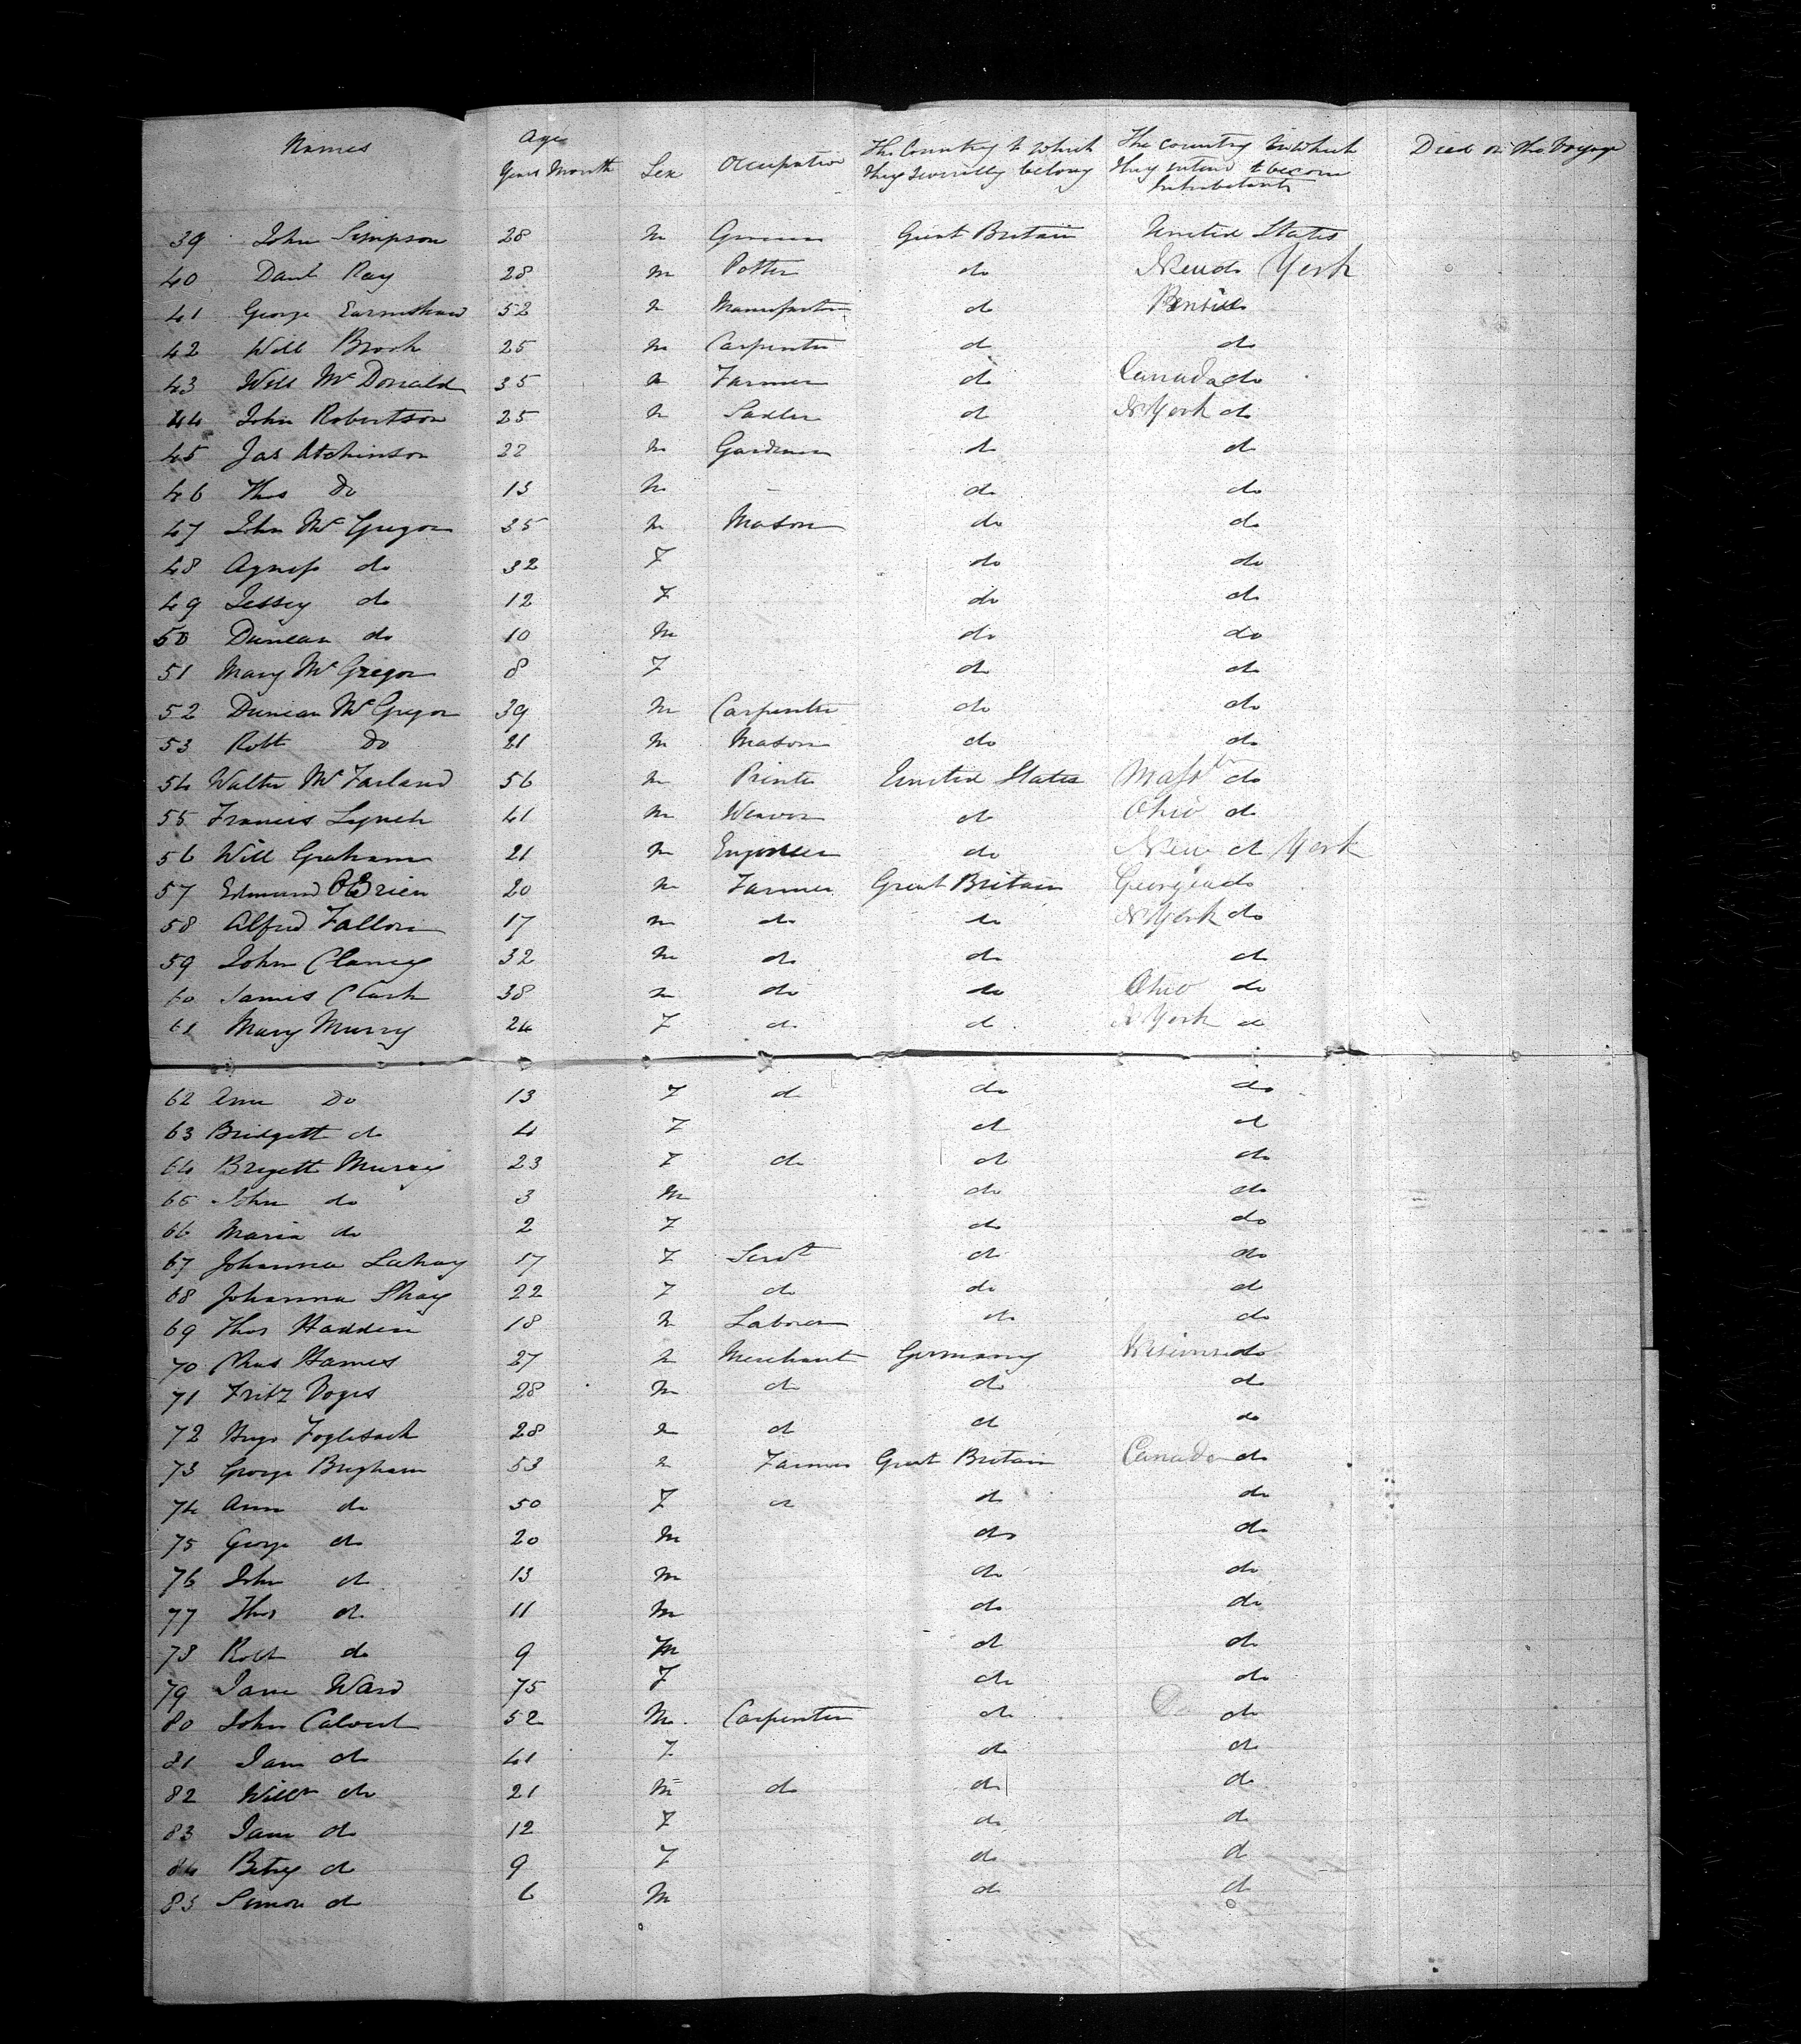 Names Age Sex Occupation The Country to which The country in which Died on the Voyage
Years Month they severally belong they intend to become
Inhabitants
39 John Simpson 28 M Great Britain United States
40 Danl Ray 28 M Potter do New do York
41 George Earnshaw 52 M Manufactr do do
42 Will Brook 25 M Carpenter do do
43 Will McDonald 35 M Farmer do Canada do
44 John Robertson 25 M Sadler do N York do
45 Jas Atchinson 22 M Gardener do do
46 Thos Do 13 M - do do
47 John McGregor 35 M Mason do do
48 Agness do 32 F do do
49 Jessey do 12 F do do
50 Duncan do 10 M do do
51 Mary McGregor 8 F do do
52 Duncan McGregor 39 M Carpenter do do
53 Robt Do 21 M Mason do do
54 Walter McFarland 56 M Printer United States Masstts do
55 Francis Lynch 41 M Weaver do Ohio do
56 Will Graham 21 M Engineer do New do York
57 Edmund OBrien 20 M Farmer Great Britain Georgia do
58 Alfred Fallon 17 M do do N York do
59 John Clancy 32 M do do do
60 James Clark 38 M do do Ohio do
61 Mary Murry 24 F do do N York do
62 Ann Do 13 F do do do
63 Bridgett do 4 F do do
64 Brigett Murry 23 F do do do
65 John do 3 M do do
66 Maria do 2 F do do
67 Johanna Lahay 17 F Servt do do
68 Johanna Shay 22 F do do do
69 Thos Hadden 18 M Laborer do do
70 Chas Hames 27 M Merchant Germany do
71 Fritz Voges 28 M do do do
72 Hugo 28 M do do do
73 George Brigham 53 M Farmer Great Britain Canada do
74 Ann do 50 F do do do
75 George do 20 M do do
76 John do 13 M do do
77 Thos do 11 M do do
78 Robt do 9 M do do
79 Jane Ward 75 F do do
80 John Calvert 52 M Carpenter do do
81 Jane do 41 F do do
82 Willm do 21 M do do do
83 Jane do 12 F do do
84 Betsy do 9 F do do
85 Simon do 6 M do do